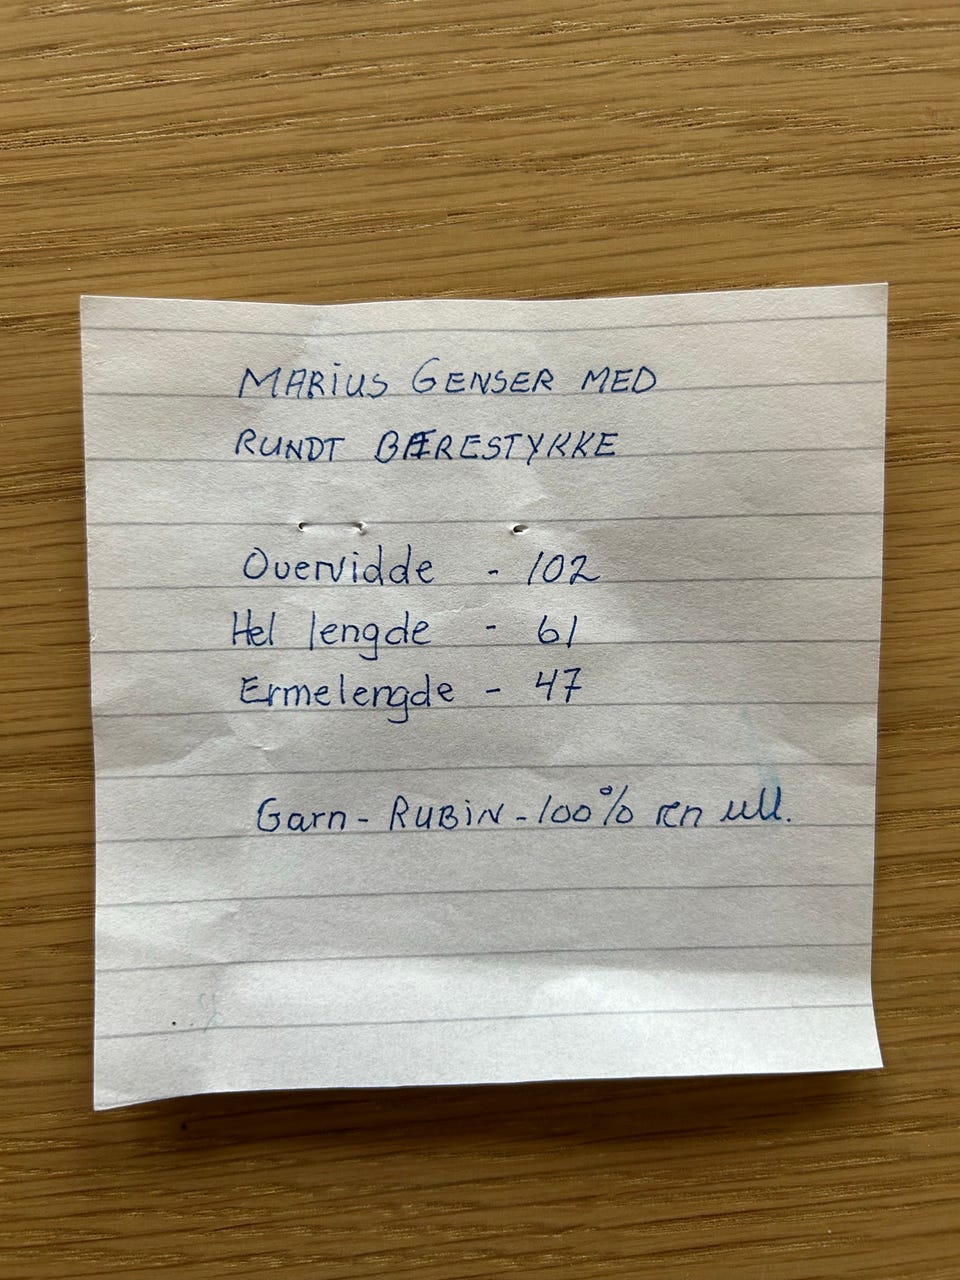 MARIUS GENSER MED
RUNDT BÆRESTYKKE
Overvidde - 102
Hel lengde - 61
Ermelengde - 47
Garn - RUBIN - 100% ren ull.